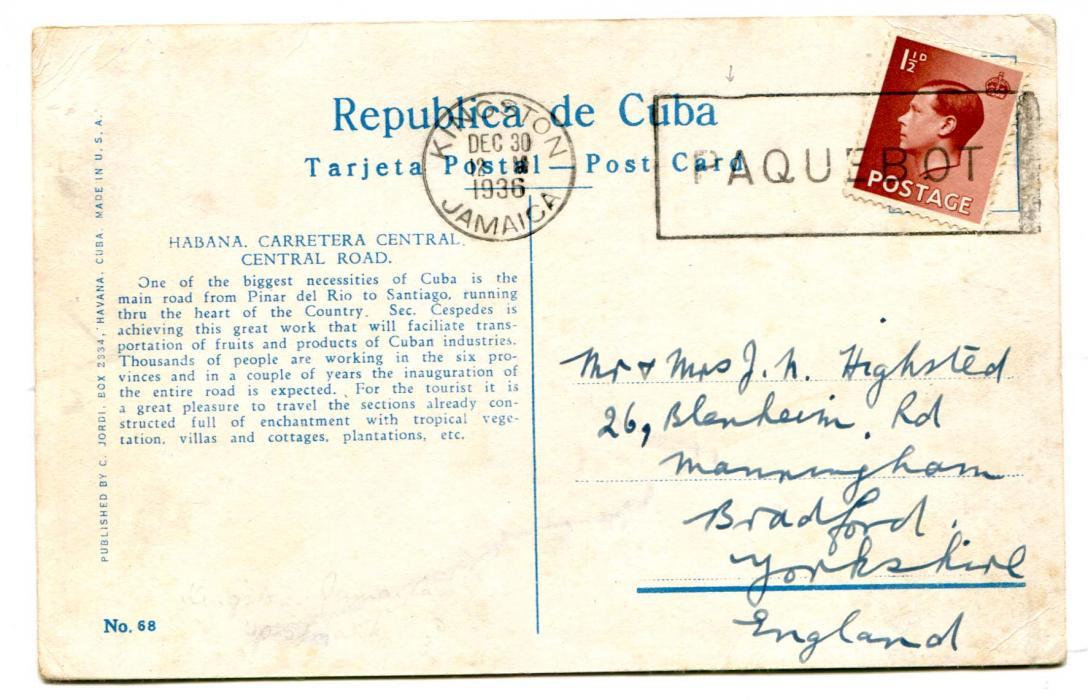 Republica de Cuba
Tarjeta Postal — Post Card
KINGSTON
DEC 30
12 M
1936
JAMAICA
PAQUEBOT
1½D
POSTAGE
PUBLISHED BY C. JORDI, BOX 2334, HAVANA, CUBA. MADE IN U. S. A.
HABANA. CARRETERA CENTRAL.
CENTRAL ROAD.
One of the biggest necessities of Cuba is the
main road from Pinar del Rio to Santiago, running
thru the heart of the Country. Sec. Cespedes is
achieving this great work that will faciliate trans-
portation of fruits and products of Cuban industries.
Thousands of people are working in the six pro-
vinces and in a couple of years the inauguration of
the entire road is expected. For the tourist it is
a great pleasure to travel the sections already con-
structed full of enchantment with tropical vege-
tation, villas and cottages, plantations, etc.
No. 68
Mr & Mrs J. N. Highsted
26, Blenheim Rd
Manningham
Bradford.
Yorkshire
England